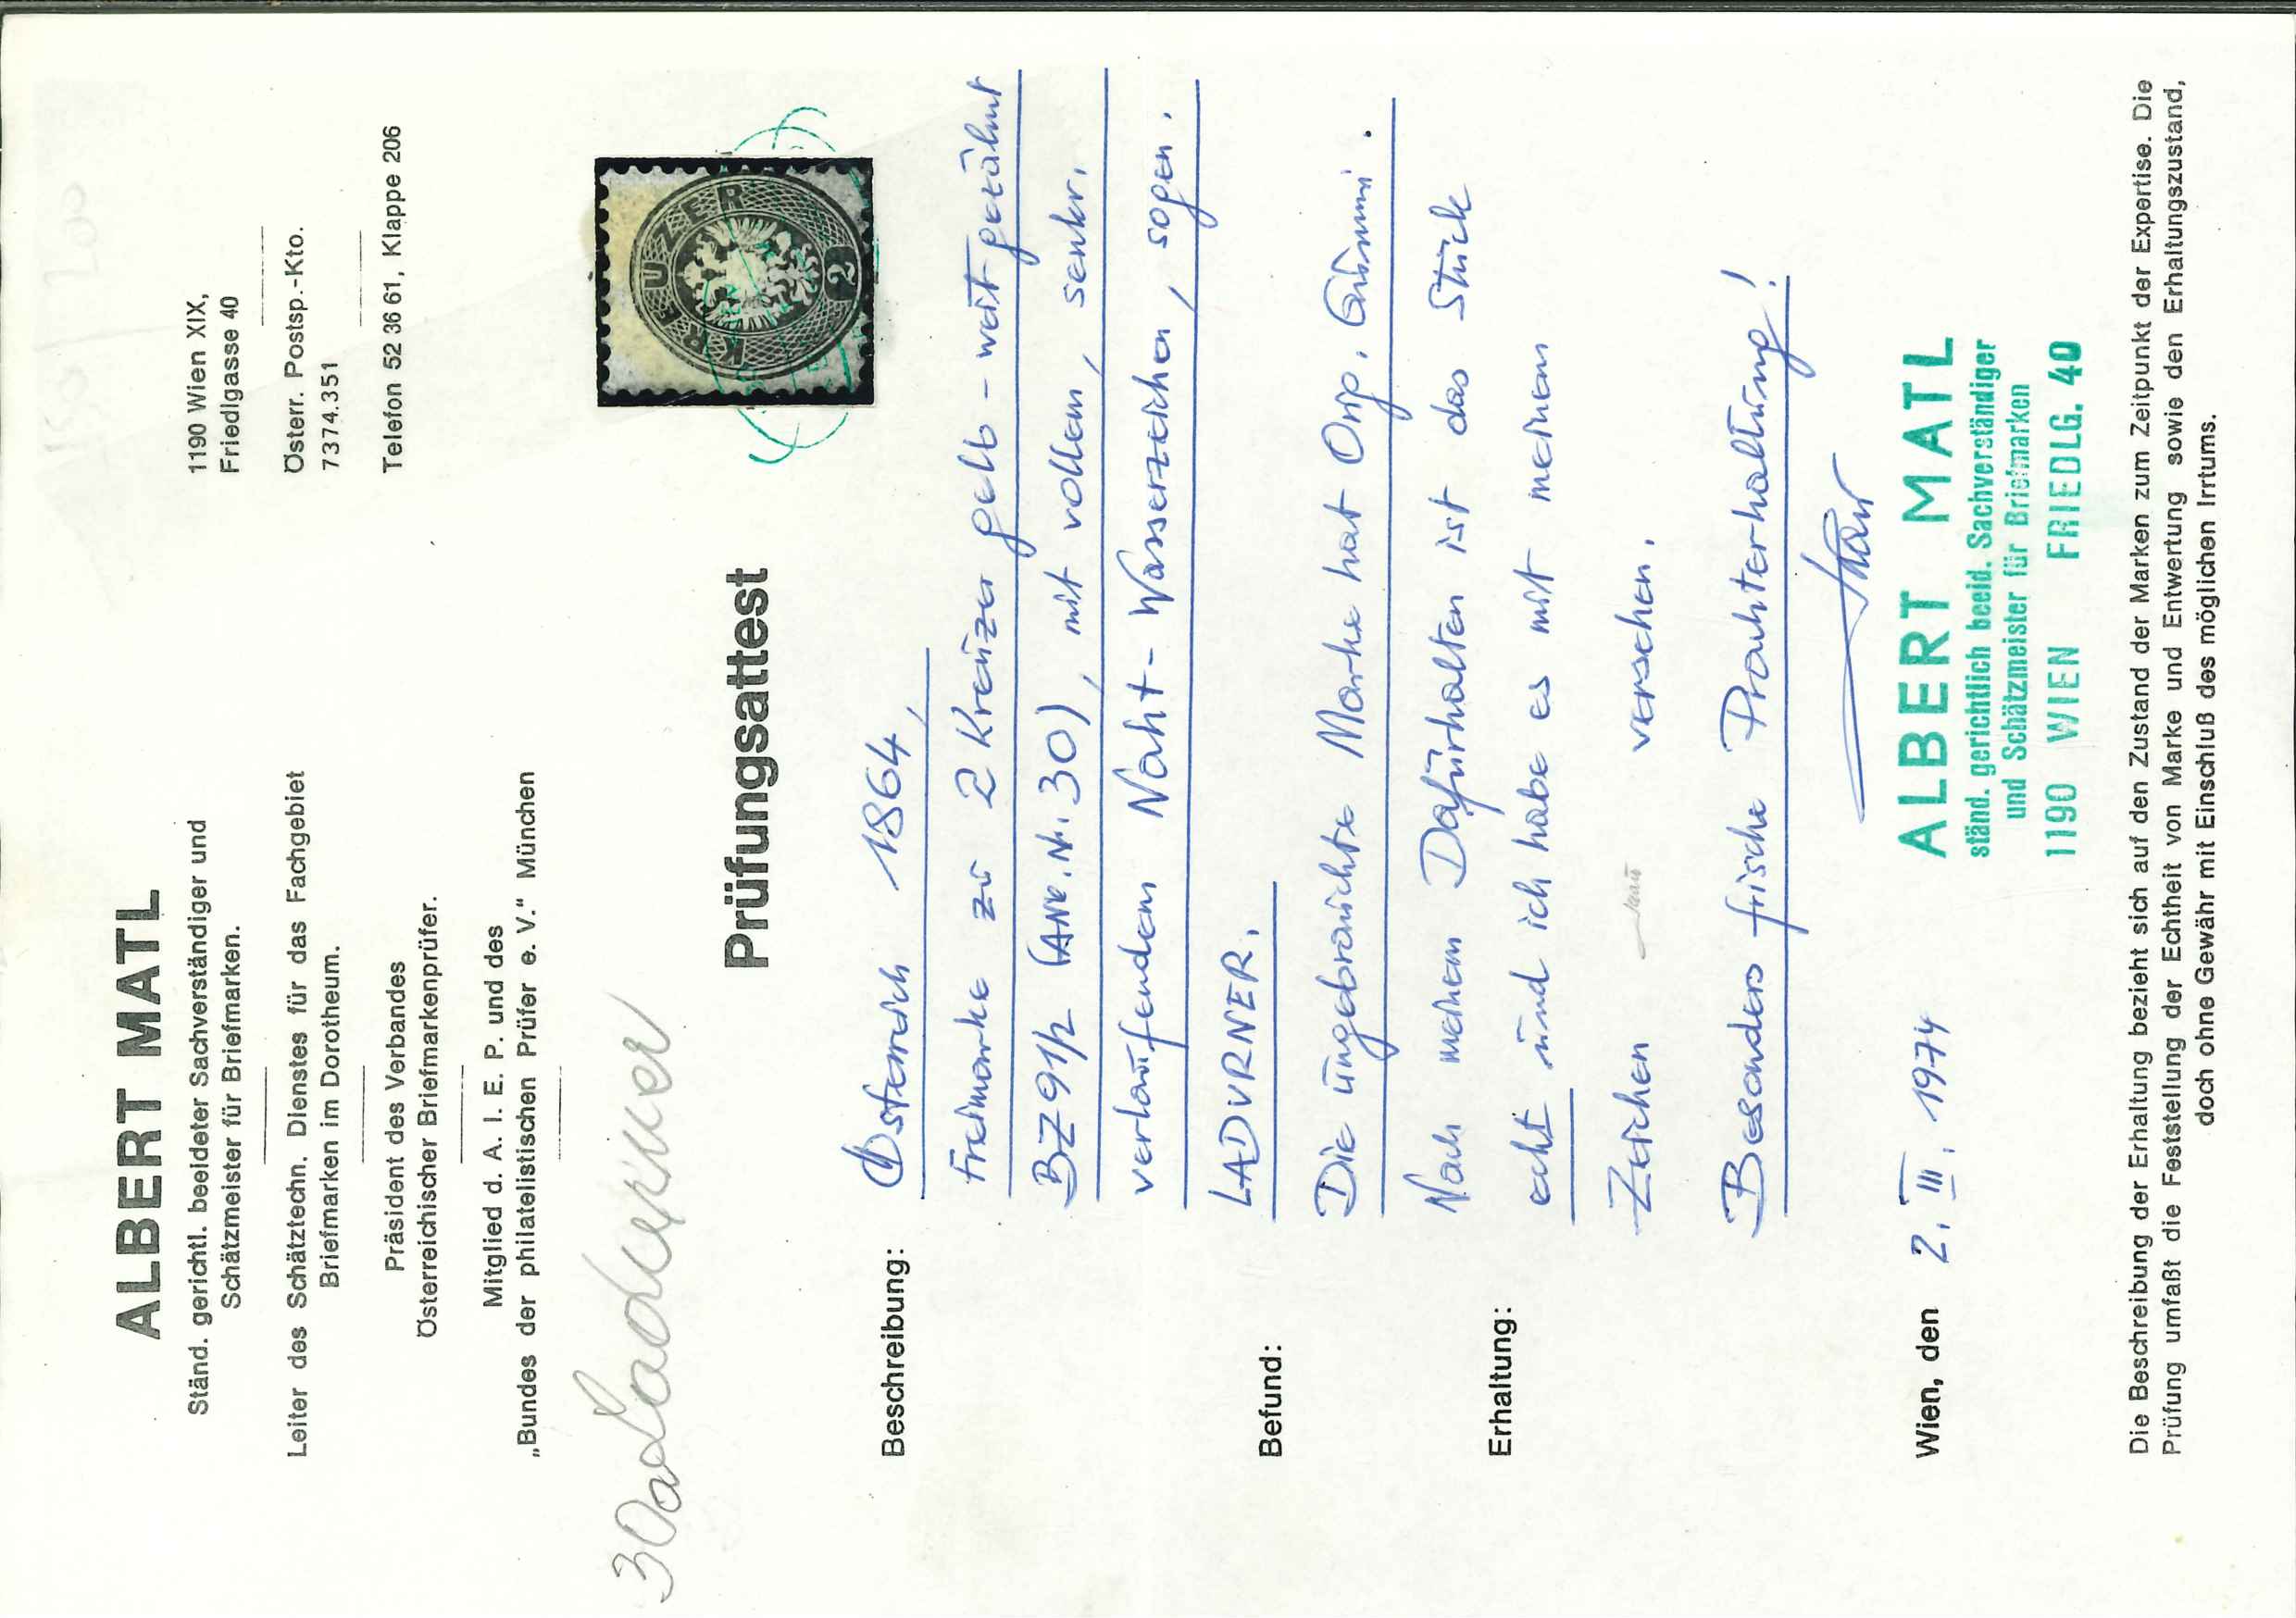 ALBERT MATL
Ständ. gerichtl. beeideter Sachverständiger und
Schätzmeister für Briefmarken.
Leiter des Schätztechn. Dienstes für das Fachgebiet
Briefmarken im Dorotheum.
Präsident des Verbandes
Österreichischer Briefmarkenprüfer.
Mitglied d. A. I. E. P. und des
„Bundes der philatelistischen Prüfer e. V." München
1190 Wien XIX,
Friedlgasse 40
Österr. Postsp.-Kto.
7374.351
Telefon 52 36 61, Klappe 206
30a Ladurner
KREUZER
2
Prüfungsattest
Beschreibung:
Österreich 1864,
Freimarke zu 2 Kreuzer gelb - weit gezähnt
BZ 9 1/2 (ANK. Nr. 30), mit vollem, senkr.
verlaufendem Naht - Wasserzeichen, sogen.
LADURNER.
Befund:
Die ungebrauchte Marke hat Orig. Gummi.
Nach meinem Dafürhalten ist das Stück
Erhaltung:
echt und ich habe es mit meinem
Zeichen versehen.
Besonders frische Prachterhaltung!
Wien, den 2. III. 1974
ALBERT MATL
ständ. gerichtlich beeid. Sachverständiger
und Schätzmeister für Briefmarken
1190 WIEN FRIEDLG. 40
Die Beschreibung der Erhaltung bezieht sich auf den Zustand der Marken zum Zeitpunkt der Expertise. Die
Prüfung umfaßt die Feststellung der Echtheit von Marke und Entwertung sowie den Erhaltungszustand,
doch ohne Gewähr mit Einschluß des möglichen Irrtums.